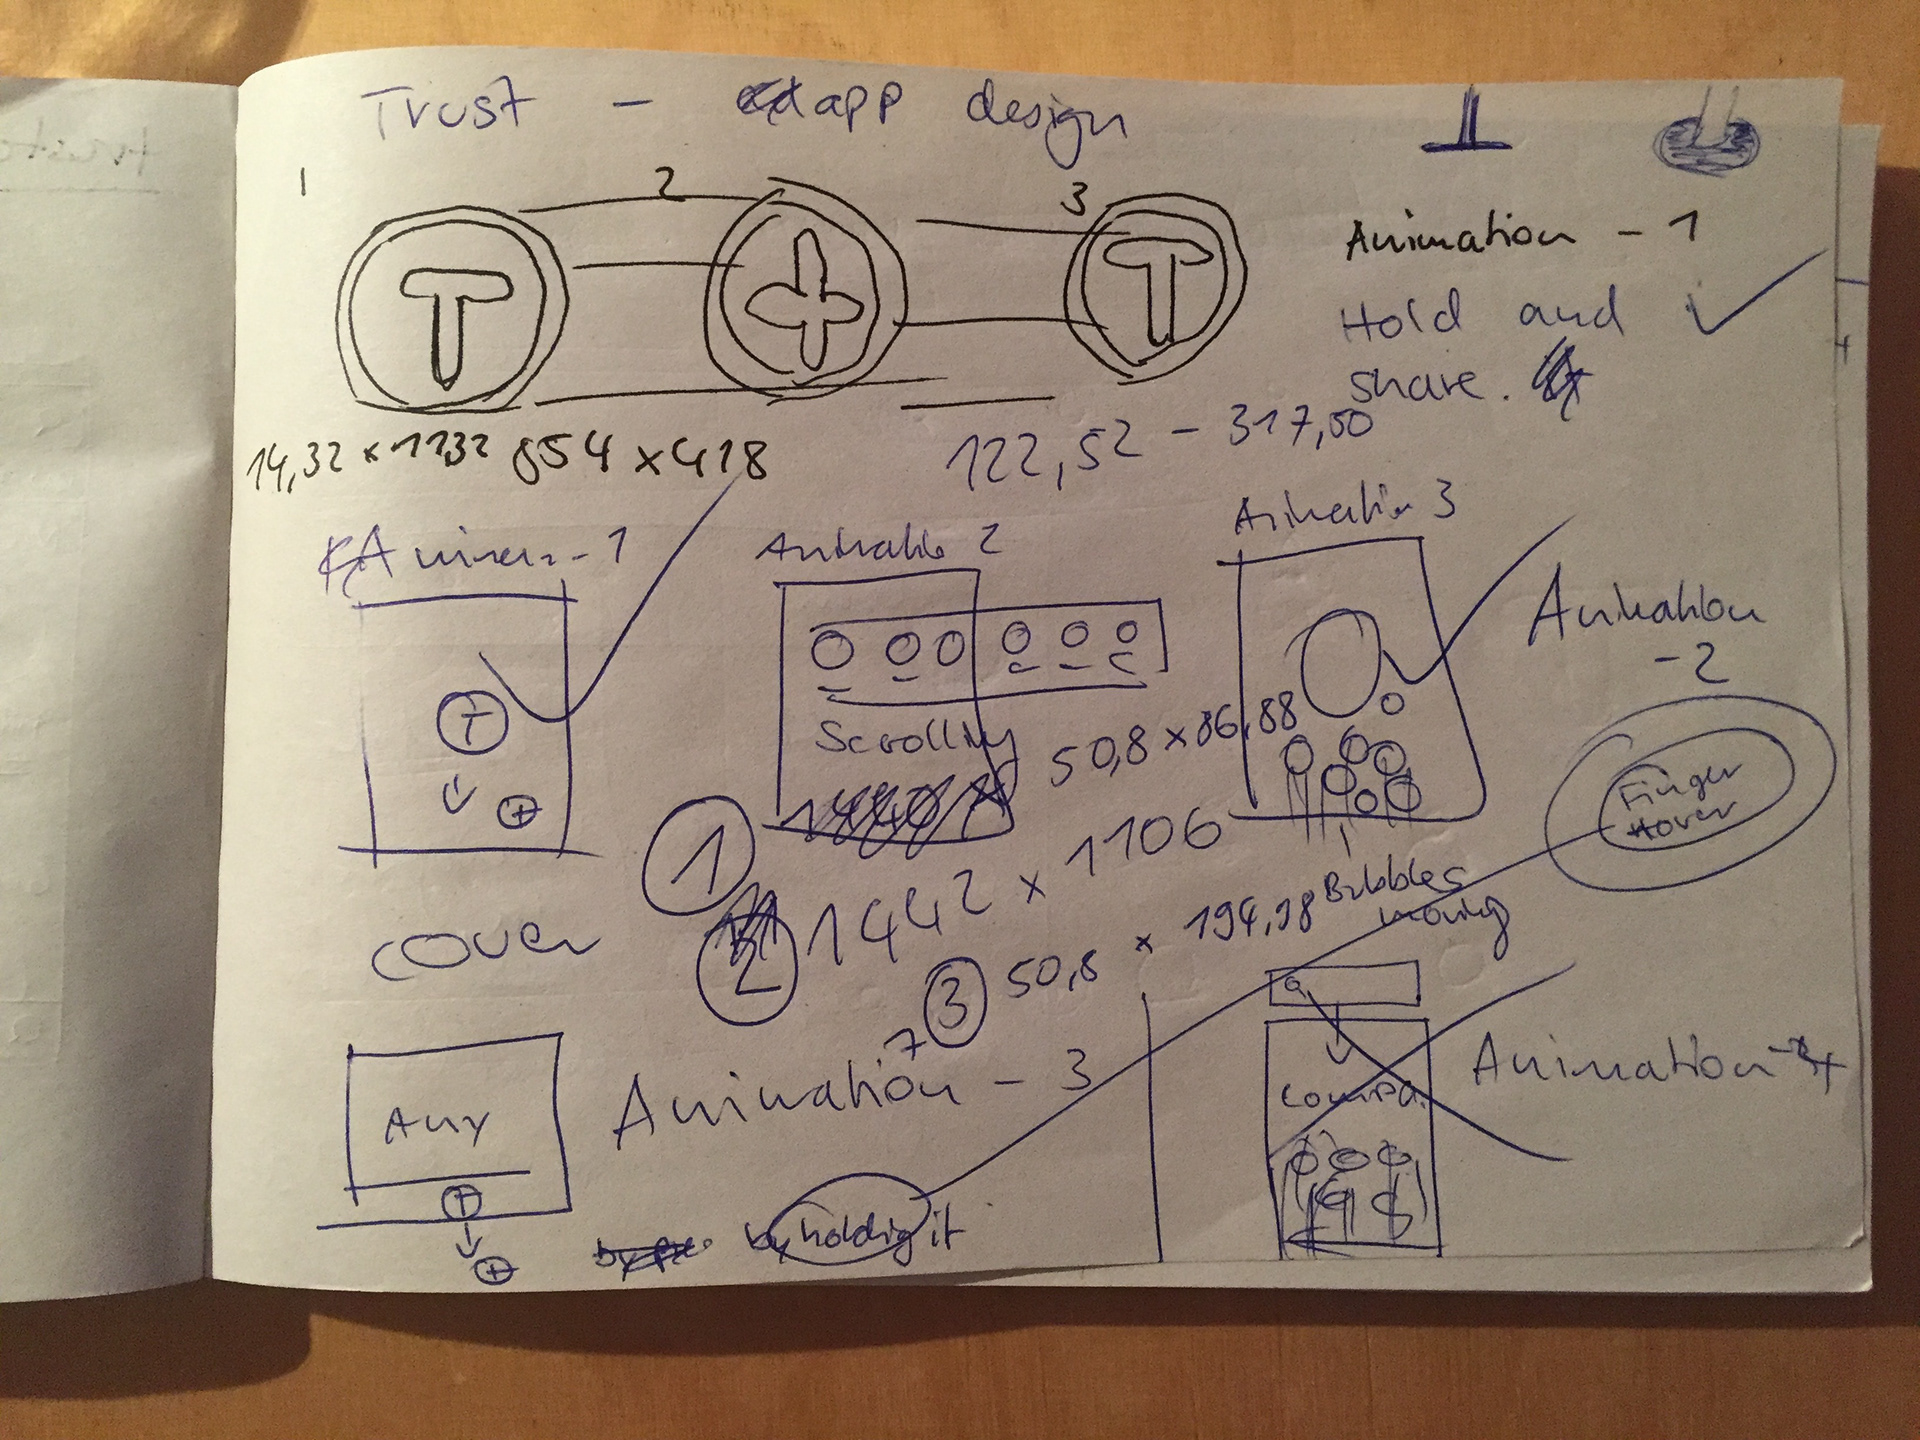 Trust - app design
1
2
3
T
T
Animation - 1
Hold and
share.
14,32 x
854 x 418
122,52 - 317,50
Animation 3
Animation
-2
T
Scrolling
50,8 x 86,88
1
1442 x 1106
2
3
50,8 x 194,98
Bubbles
moving
Finger
Hover
cover
Animation - 3
Any
by holding it
Compa.
Animation